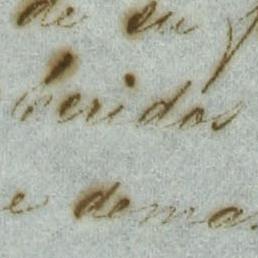 de su
heridos
e demas